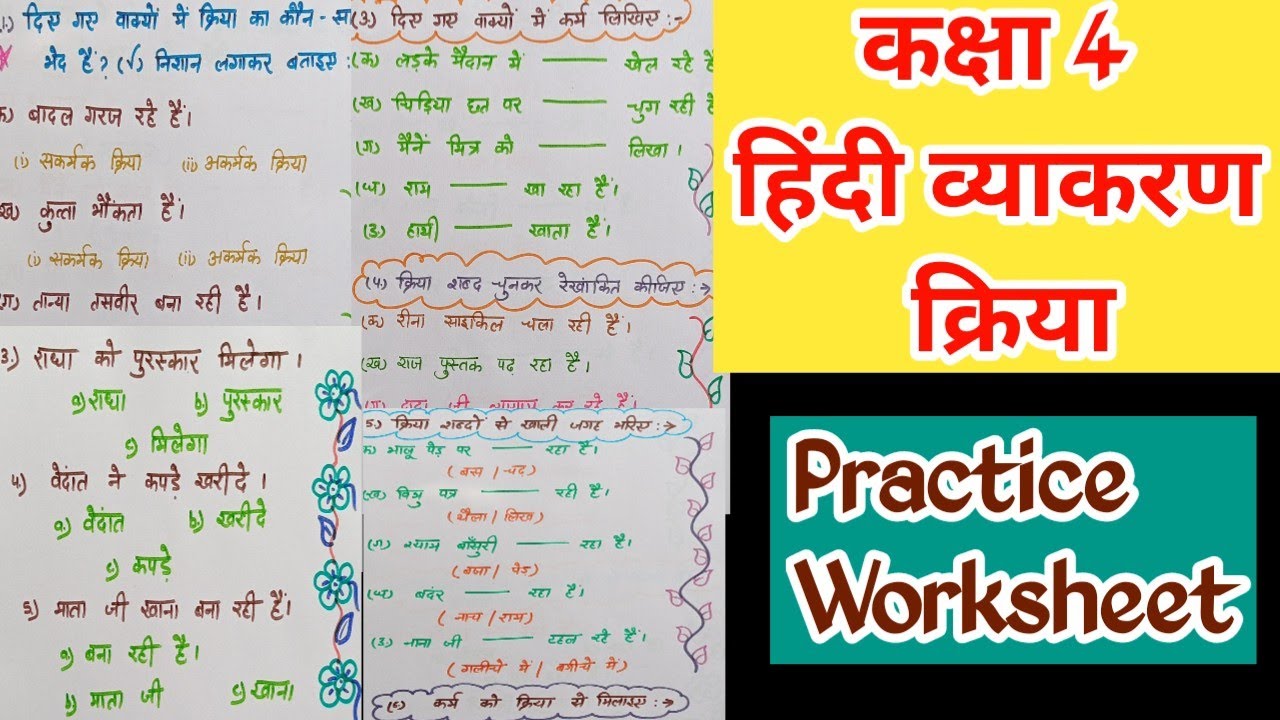 1) दिए गए वाक्यों में क्रिया का कौन - सा
भेद है? (✓) निशान लगाकर बताइए :
क) बादल गरज रहे हैं।
(i) सकर्मक क्रिया (ii) अकर्मक क्रिया
ख) कुत्ता भौंकता है।
(i) सकर्मक क्रिया (ii) अकर्मक क्रिया
ग) तान्या तसवीर बना रही है।
3.) राधा को पुरस्कार मिलेगा ।
a) राधा b) पुरस्कार
c) मिलेगा
4) वेदांत ने कपड़े खरीदे ।
a) वेदांत b) खरीदे
c) कपड़े
5) माता जी खाना बना रही हैं।
a) बना रही है।
b) माता जी c) खाना
(3) दिए गए वाक्यों में कर्म लिखिए :-
(क) लड़के मैदान में —— खेल रहे हैं
(ख) चिड़िया छत पर —— चुग रही है
(ग) मैनें मित्र को —— लिखा ।
(घ) राम —— खा रहा है।
(ङ) हाथी —— खाता है।
(4) क्रिया शब्द चुनकर रेखांकित कीजिए :→
(क) रीना साइकिल चला रही है।
(ख) राज पुस्तक पढ़ रहा है।
(ग) दादा जी व्यायाम कर रहे हैं।
5) क्रिया शब्दों से खाली जगह भरिए :→
क) भालू पेड़ पर —— रहा है।
( बस / चढ़ )
(ख) पत्र —— रही है।
( थैला / लिख )
(ग) श्याम बाँसुरी —— रहा है।
( बजा / पेड़ )
(घ) बदंर —— रहा है।
( नाच / राम )
(ङ) नाना जी —— टहल रहे हैं।
( गलीचे में / बगीचे में )
(6) कर्म को क्रिया से मिलाइए :→
कक्षा 4
हिंदी व्याकरण
क्रिया
Practice
Worksheet